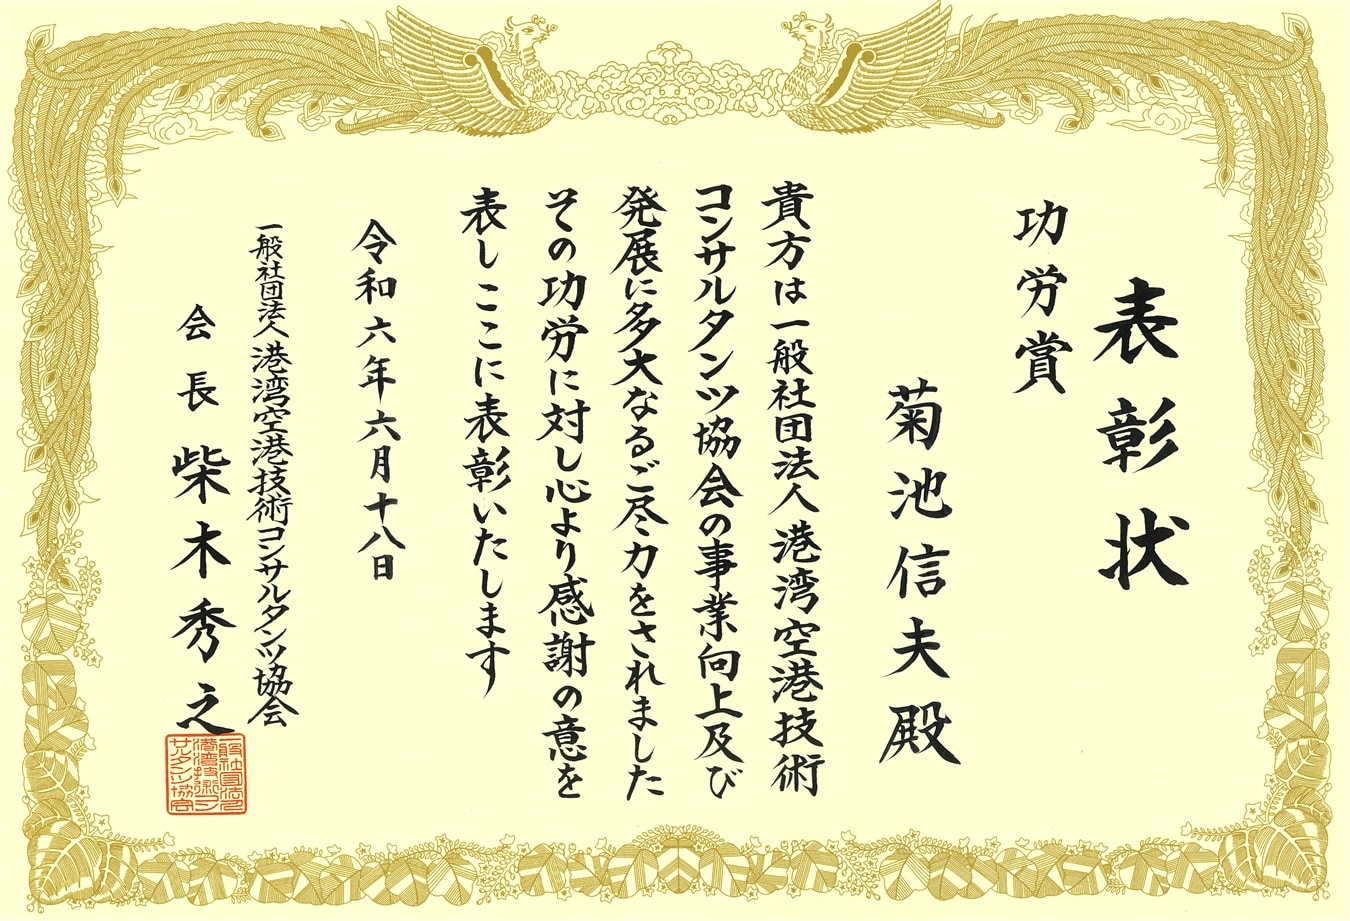 表彰状
功労賞
菊池信夫殿
貴方は一般社団法人港湾空港技術
コンサルタンツ協会の事業向上及び
発展に多大なるご尽力をされました
その功労に対し心より感謝の意を
表しここに表彰いたします
令和六年六月十八日
一般社団法人港湾空港技術コンサルタンツ協会
会長 柴木秀之